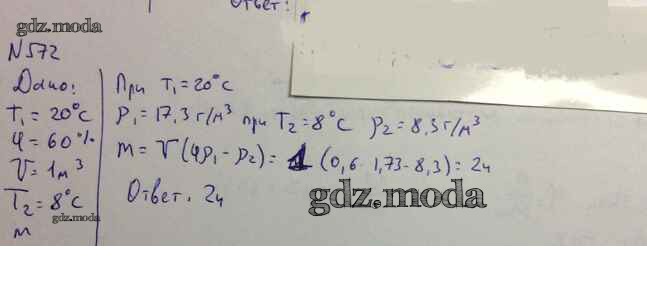 Ответ:
gdz.moda
N 572
Дано:
T₁ = 20°C
φ = 60%
V = 1 м³
T₂ = 8°C
gdz.moda
m
При T₁ = 20°C
ρ₁ = 17,3 г/м³ при T₂ = 8°C ρ₂ = 8,3 г/м³
m = V (φρ₁ - ρ₂) = 1 (0,6 · 1,73 - 8,3) = 2г
Ответ. 2г
gdz.moda